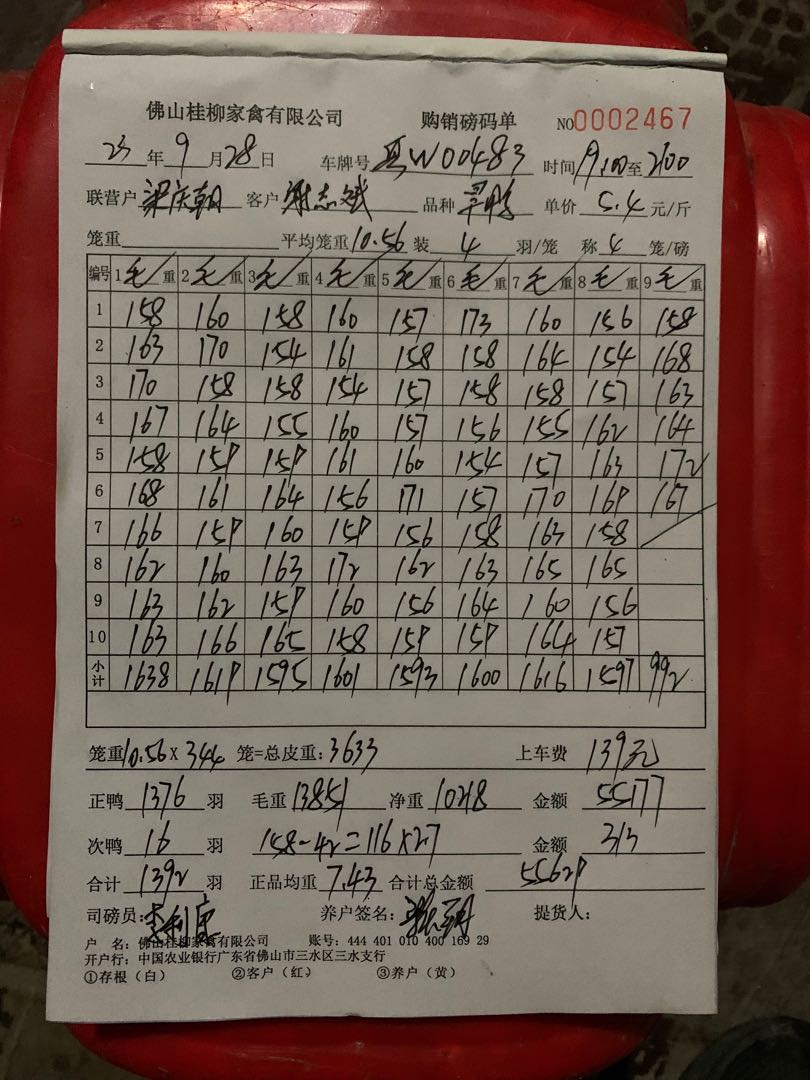 佛山桂柳家禽有限公司 购销磅码单 NO0002467
23年9月28日 车牌号 W00483 时间19:00至2100
联营户 梁庆朝 客户 谢志斌 品种 鸭 单价 5.4 元/斤
笼重 平均笼重10.56装 4 羽/笼 称 4 笼/磅
编号 1毛/重 2毛/重 3毛/重 4毛/重 5毛/重 6毛/重 7毛/重 8毛/重 9毛/重
1 158 160 158 160 157 173 160 156 158
2 163 170 154 161 158 158 164 154 168
3 170 158 158 154 157 158 158 157 163
4 167 164 155 160 157 156 155 162 164
5 158 159 159 161 160 154 157 163 172
6 168 161 164 156 171 157 170 169 167
7 166 159 160 159 156 158 163 158
8 162 160 163 172 162 163 165 165
9 163 162 159 160 156 164 160 156
10 163 166 165 158 159 159 164 157
小计 1638 1619 1595 1601 1593 1600 1616 1597 992
笼重10.56×344 笼=总皮重:3633 上车费 139元
正鸭 1376 羽 毛重 13851 净重 10218 金额 55177
次鸭 16 羽 158-42=116×2.7 金额 313
合计 1392 羽 正品均重 7.43 合计总金额 55629
司磅员: 养户签名: 提货人:
户 名: 佛山桂柳家禽有限公司 账号: 444 401 010 400 169 29
开户行: 中国农业银行广东省佛山市三水区三水支行
①存根(白) ②客户(红) ③养户(黄)